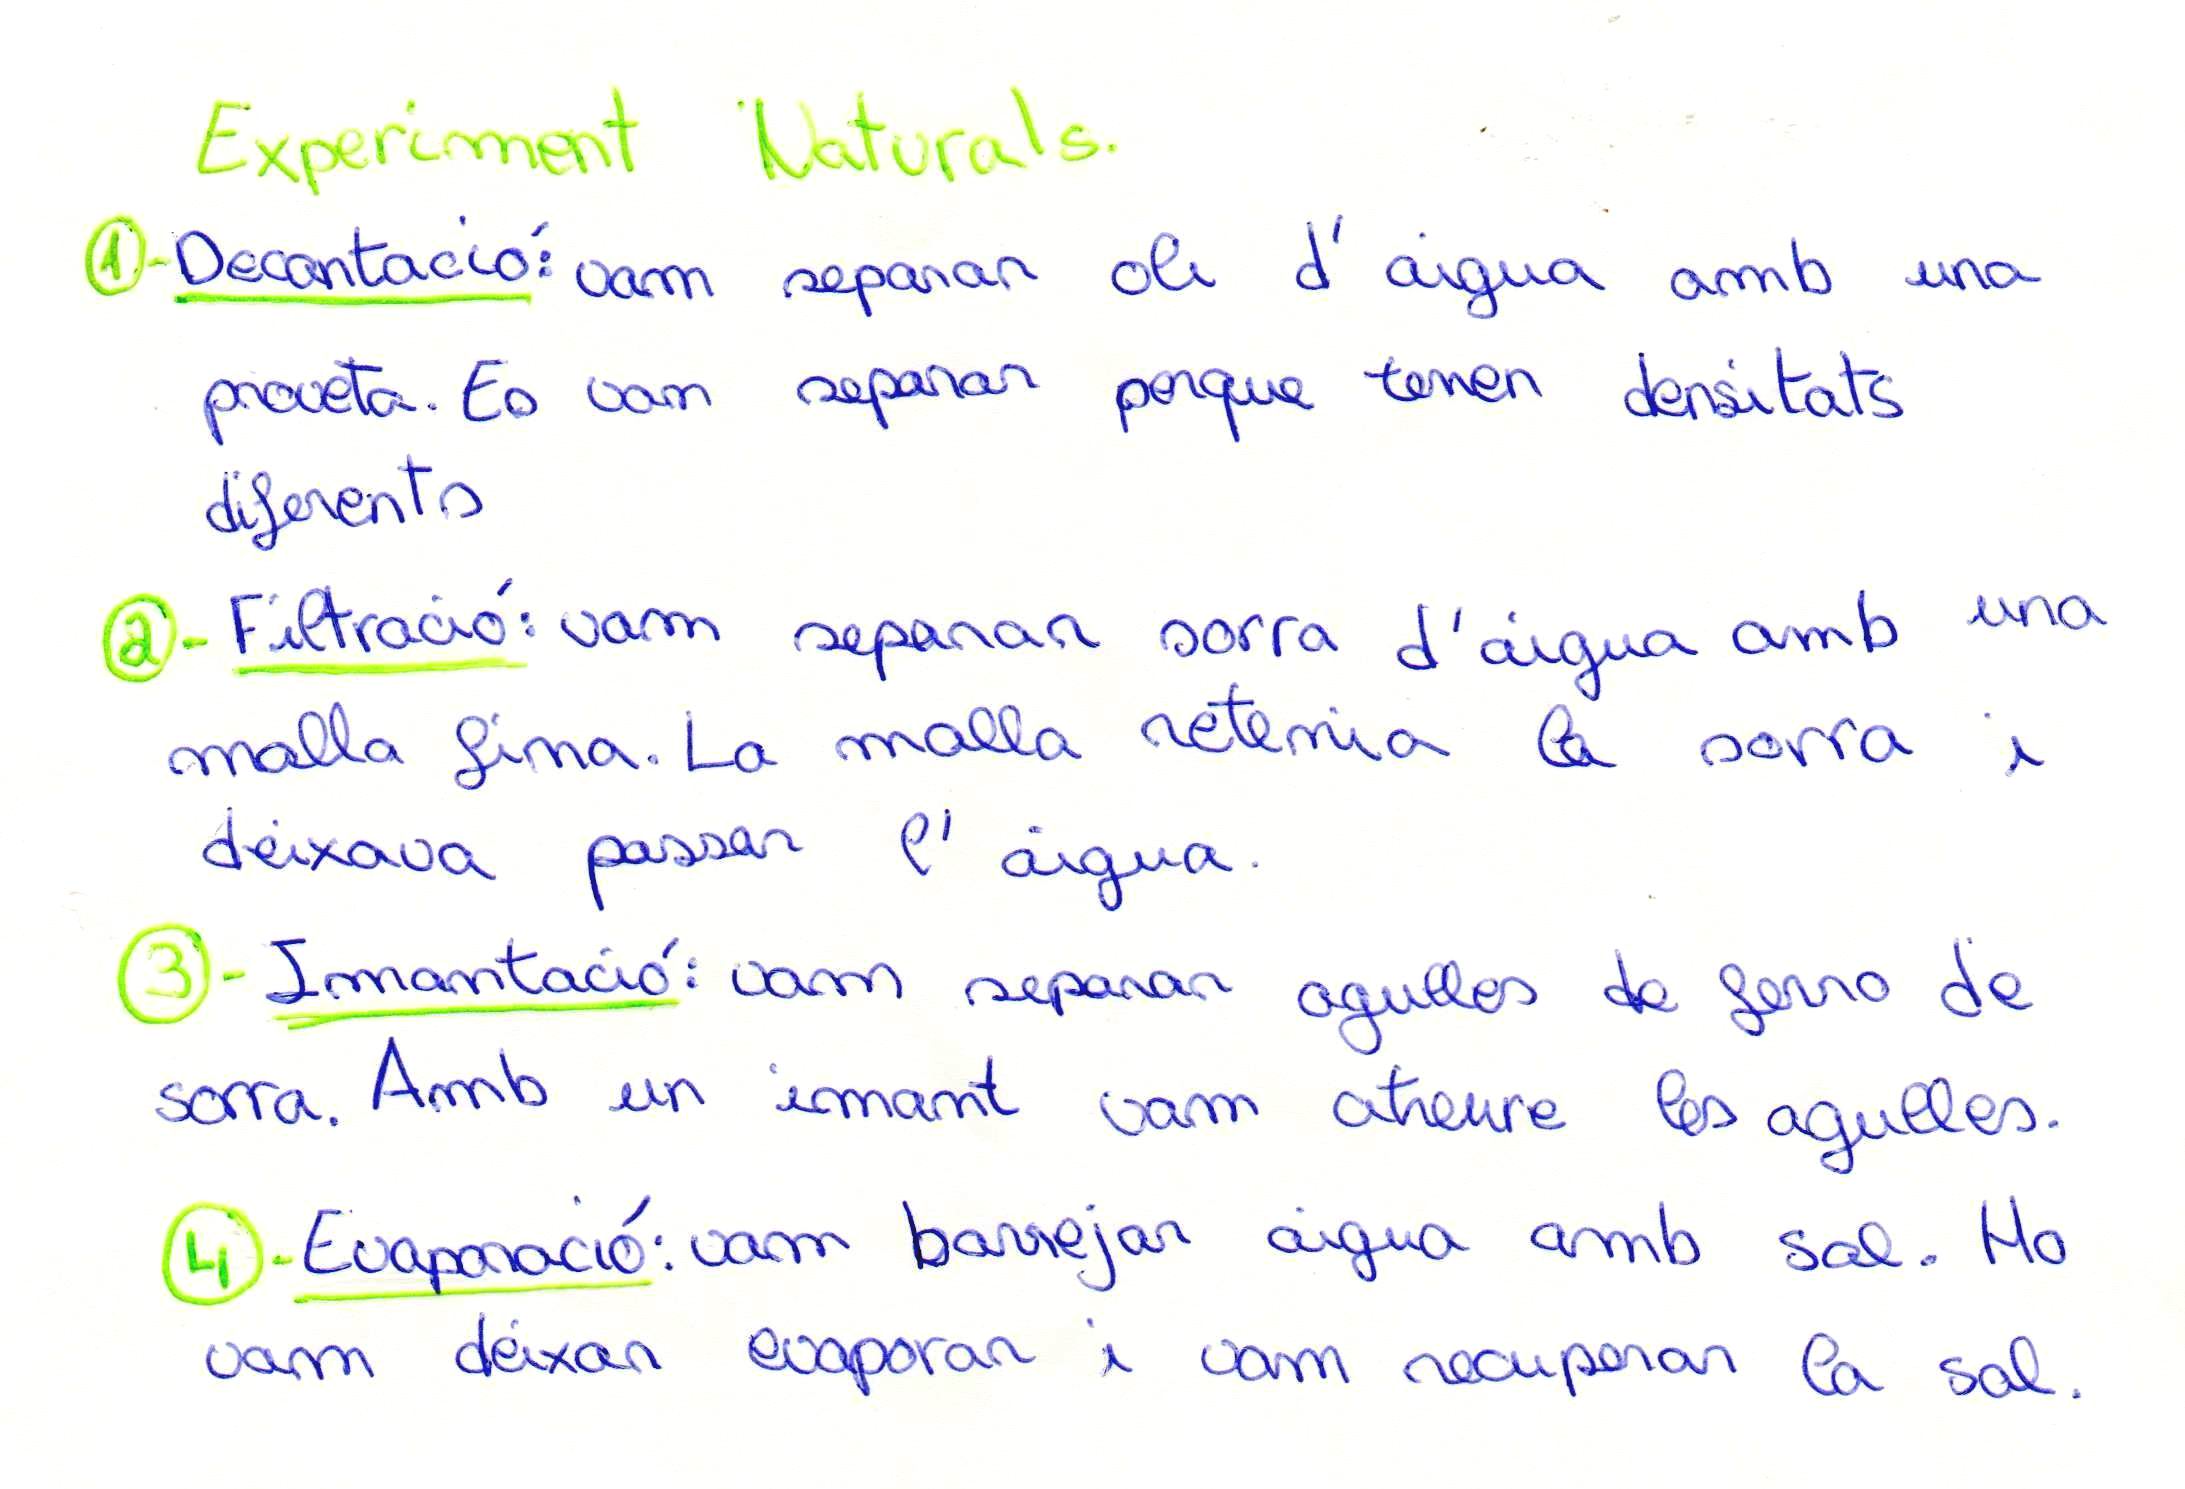 Experiment Naturals.
1-Decantació: vam separar oli d'aigua amb una
proveta. Es vam separar perque tenen densitats
diferents
2-Filtració: vam separar sorra d'aigua amb una
malla fina. La malla retenia la sorra i
deixava passar l'aigua.
3-Imantació: vam separar agulles de ferro de
sorra. Amb un imant vam atreure les agulles.
4-Evaporació: vam barrejar aigua amb sal. Ho
vam deixar evaporar i vam recuperar la sal.